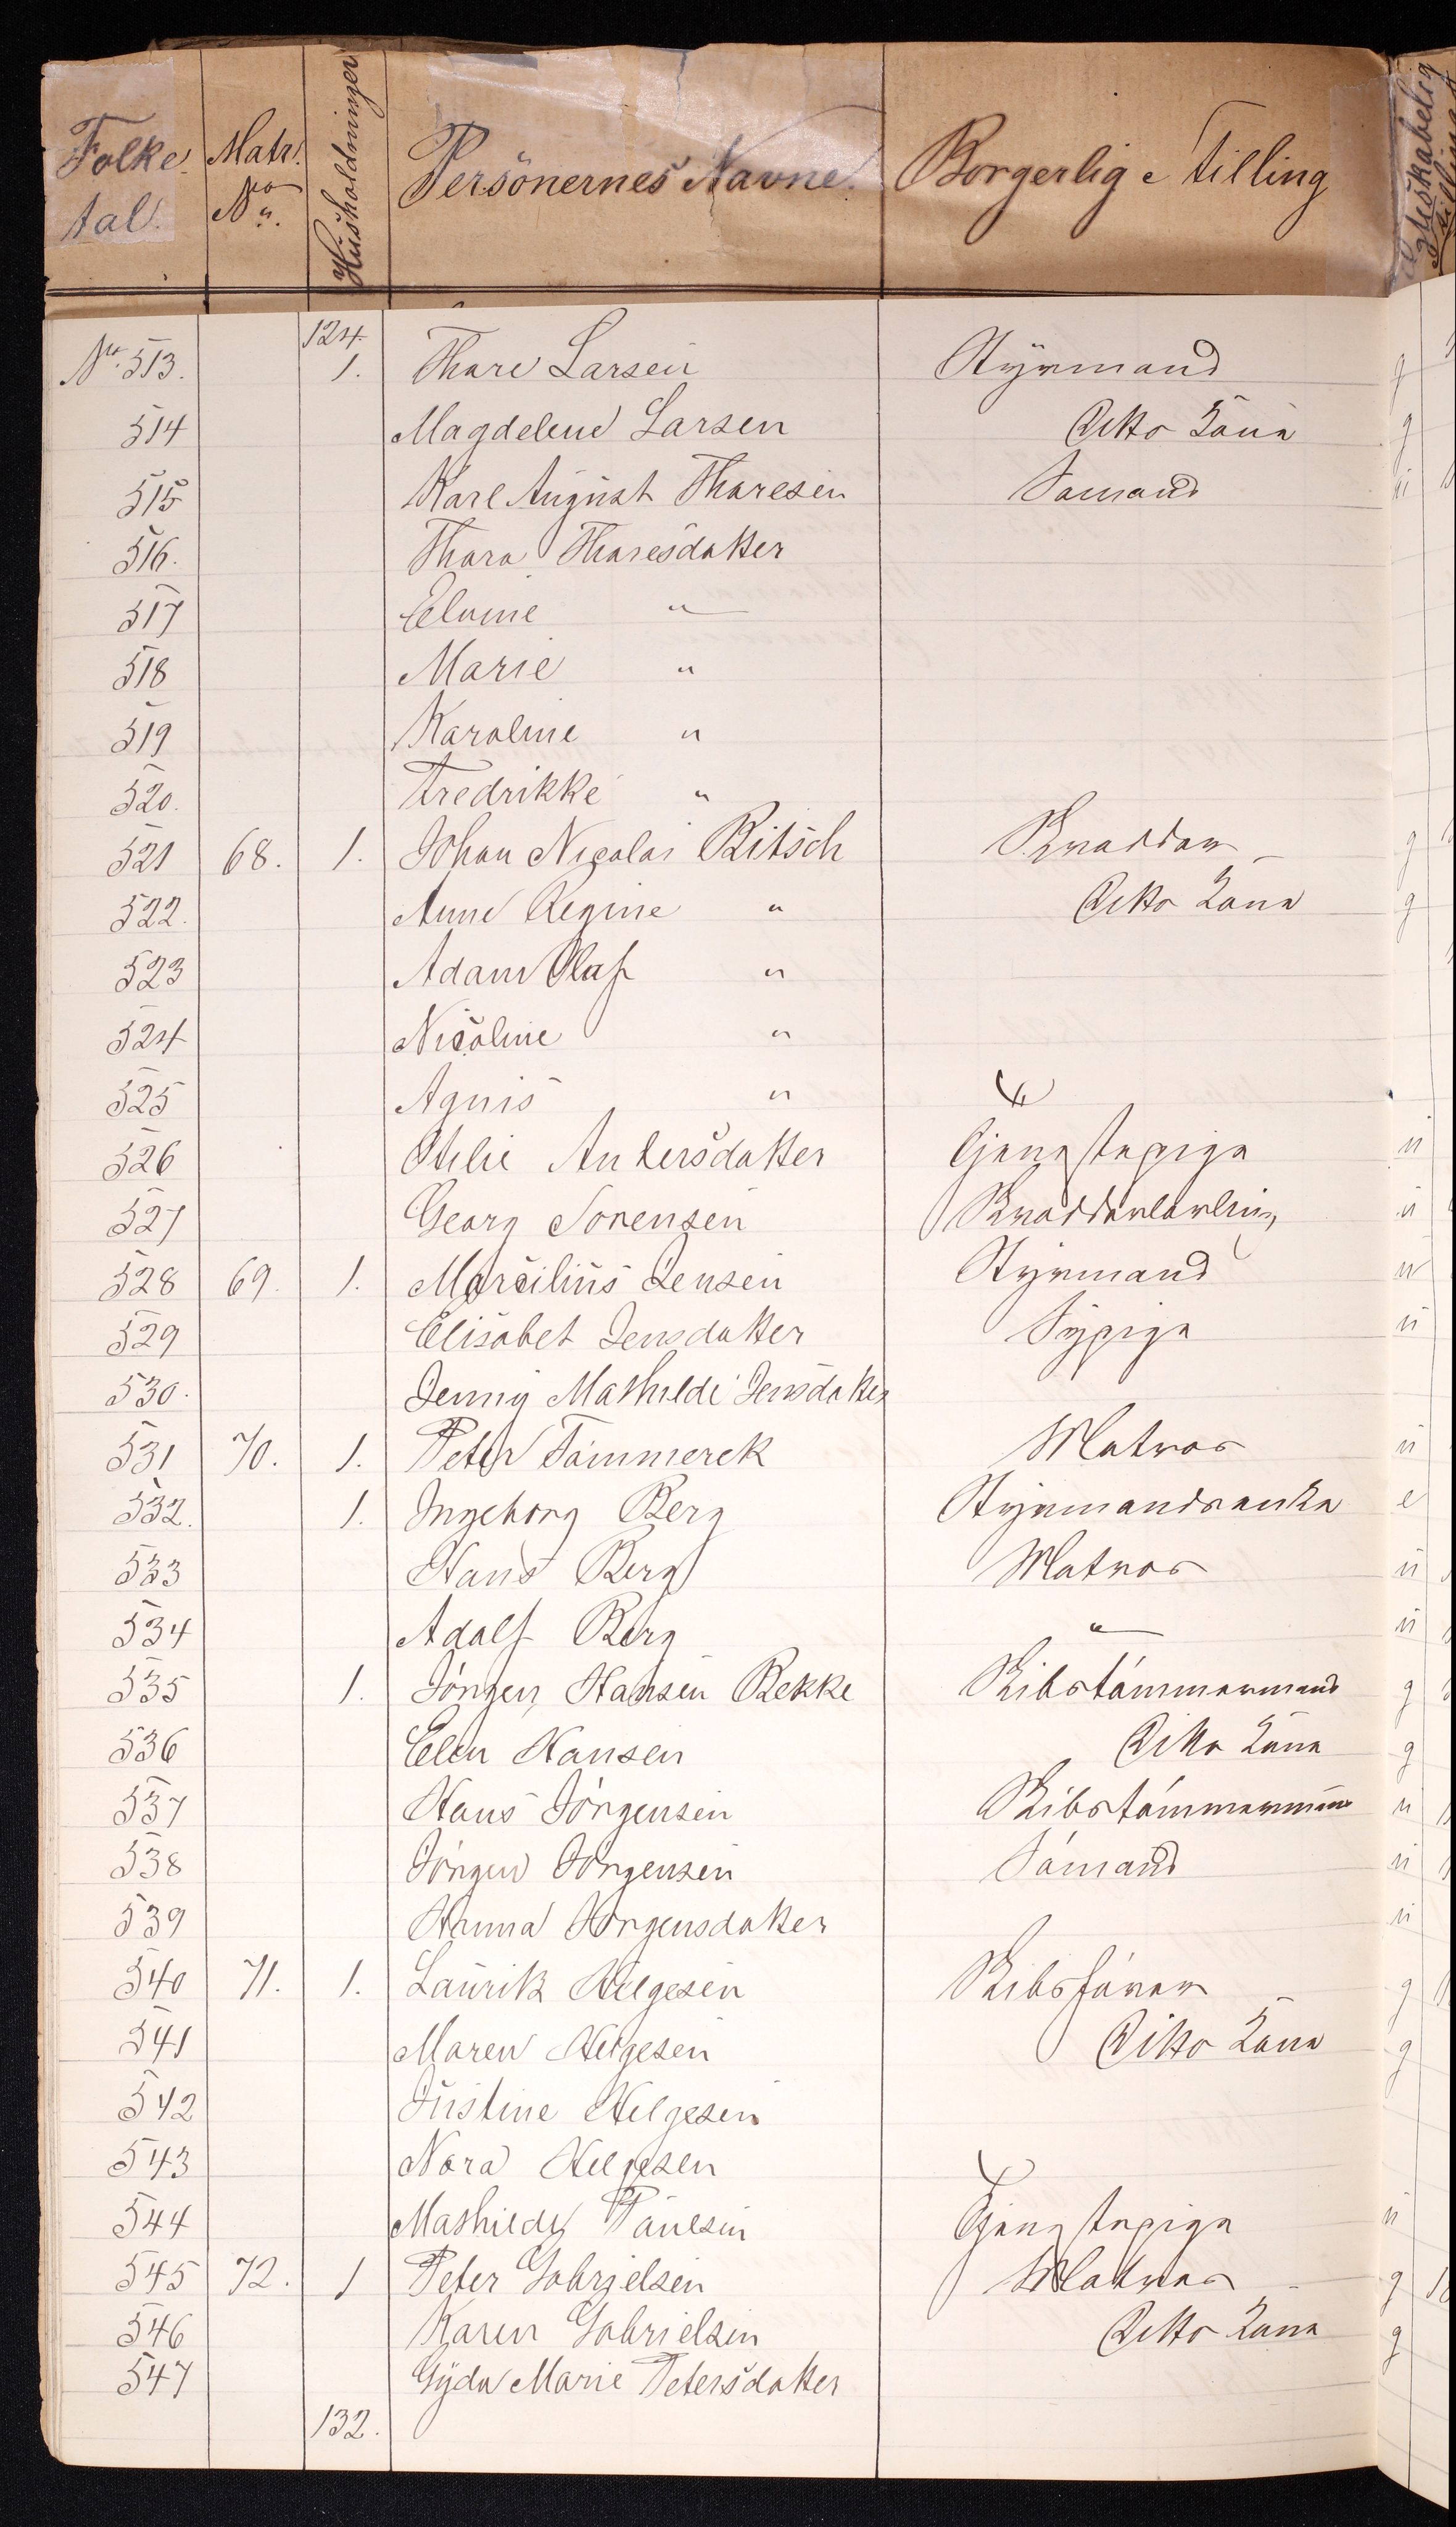 Folke Matr. Husholdninger Personernes Navne. Borgerlig Stilling Ægteskabelig
tal. No. Stilling
124.
No. 513. 1. Thore Larsen Styrmand g
514 Magdelene Larsen Ditto Kone g
515 Karl August Thoresen Sømand u
516. Thora Thoresdatter
517 Elvine "
518 Marie "
519 Karoline "
520. Fredrikke "
521 68. 1. Johan Nicolai Bitsch Skrædder g
522. Anne Regine " Ditto Kone g
523 Adam Olaf "
524 Nicoline "
525 Agnis "
526 Otilie Andersdatter Tjenestepige u
527 Georg Sørensen Skrædderlærling u
528 69. 1. Marcilius Jensen Styrmand u
529 Elisabet Jensdatter Sypige u
530. Jenny Mathilde Jensdatter
531 70. 1. Peter Tømmerek Matros u
532. 1. Ingeborg Berg Styrmandsenke e
533 Hans Berg Matros u
534 Adolf Berg " u
535 1. Jórgen Hansen Bekke Skibstómmermand g
536 Elen Hansen Ditto Kone g
537 Hans Jórgensen Skibstómmermand u
538 Jórgen Jórgensen Sómand u
539 Anna Jórgensdatter u
540 71. 1. Laurik Helgesen Skibsfører g
541 Maren Helgesen Ditto Kone g
542 Justine Helgesen
543 Nora Helgesen
544 Mathilde Paulsen Tjenestepige u
545 72. 1 Peter Gabrielsen Matros g
546 Karen Gabrielsen Ditto Kone g
547 Gyda Marie Petersdatter
132.